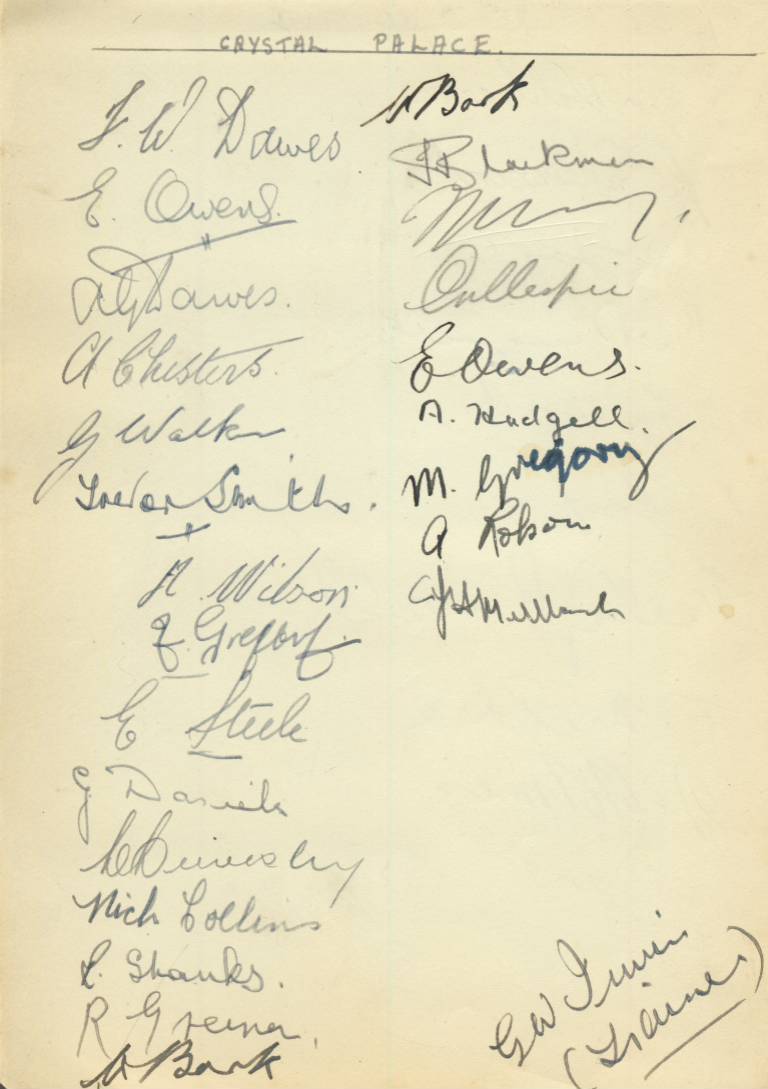 CRYSTAL PALACE.
F. W. Dawes
E. Owens.
A G Dawes.
A Chesters.
G Walker
Trevor Smith.
A. Wilson.
F. Gregory.
E Steele
G Daniels
Nick Collins
R. Shanks.
R Greener.
W Bark
W Bark
J Blackman
Gillespie
E Owens.
A. Hudgell.
M. Gregory
A Robson
G W Irwin
(Trainer)